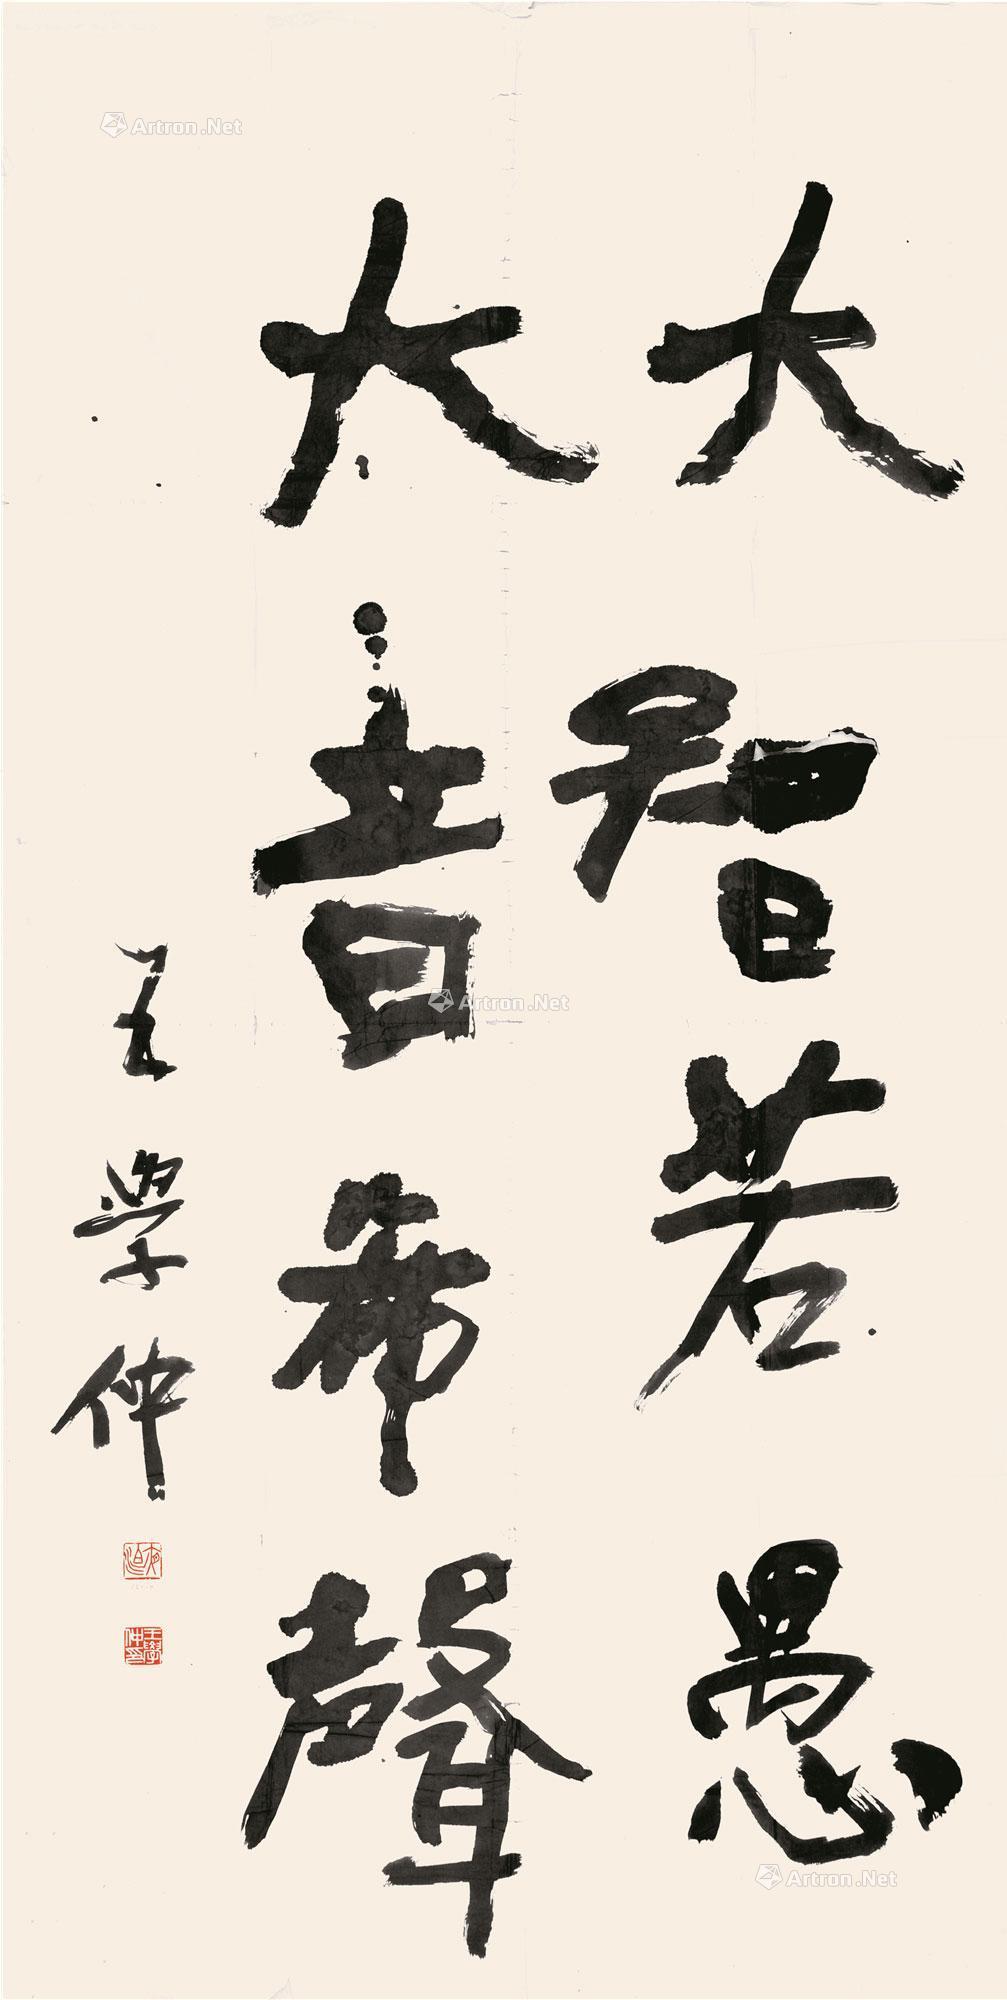 大智若愚
大音希聲
王學仲
夜泊
王學仲印
Artron.Net
Artron.Net
Artron.Net